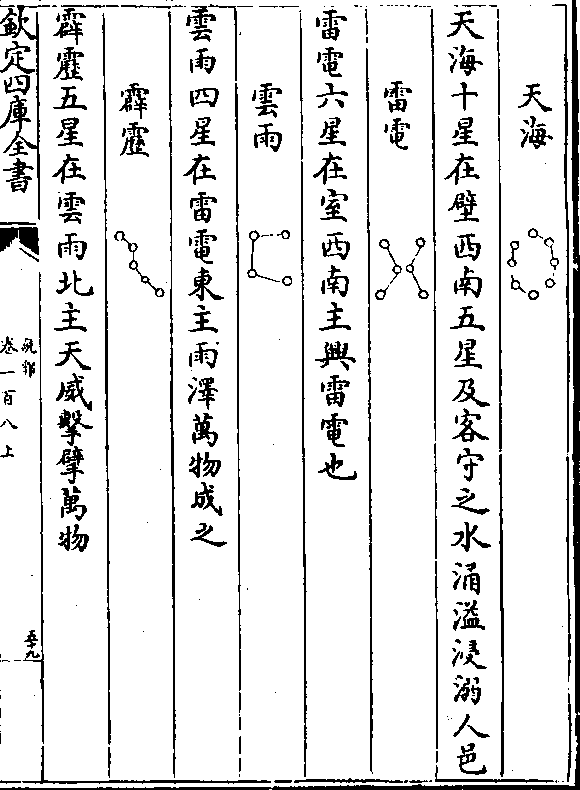 天海
天海十星在壁西南五星及客守之水涌溢浸溺人邑
雷電
雷電六星在室西南主興雷電也
雲雨
雲雨四星在雷電東主雨澤萬物成之
霹靂
霹靂五星在雲雨北主天威擊擘萬物
欽定四庫全書
説郛
卷一百八上
五十九